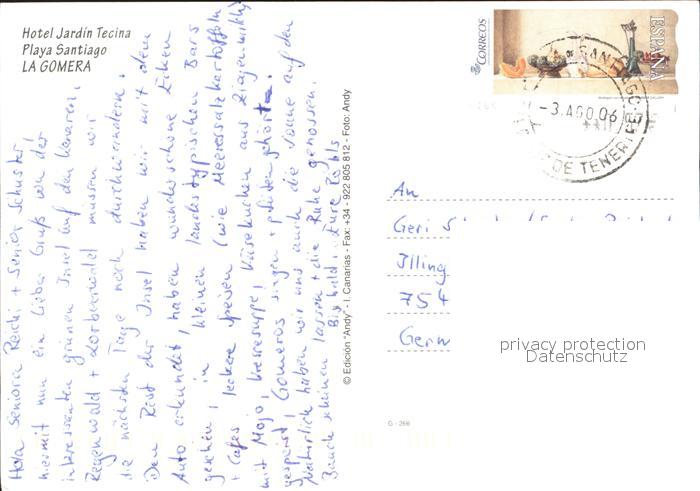 Hotel Jardín Tecina
Playa Santiago
LA GOMERA
Hola Seniora Reichi + Senior Schuster!
hiermit nun ein lieber Gruß von der
interessanten grünen Insel auf den Kanaren.
Regenwald + Lorbeerwald müssen wir
die nächsten Tage noch durchwandern.
Den Rest der Insel haben wir mit dem
Auto erkundet, haben wunderschöne Ecken
gesehen, in kleinen landestypischen Bars
+ Cafes leckere Speisen (wie Meeressalzkartoffeln
mit Mojo, Kressesuppe, Käsekuchen aus Ziegenmilch)
gespeist, Gomeros singen + pfeifen gehört.
Natürlich haben wir uns auch die Sonne auf den
Bauch scheinen lassen + die Ruhe genossen.
Bis bald, Eure
© Edición "Andy" - I. Canarias - Fax: +34 - 922 805 812 - Foto: Andy
CORREOS
ESPAÑA
SANTIAGO
-3.AGO.06
DE TENERI
An
Geri
Illing
754
Germ
privacy protection
Datenschutz
G - 266